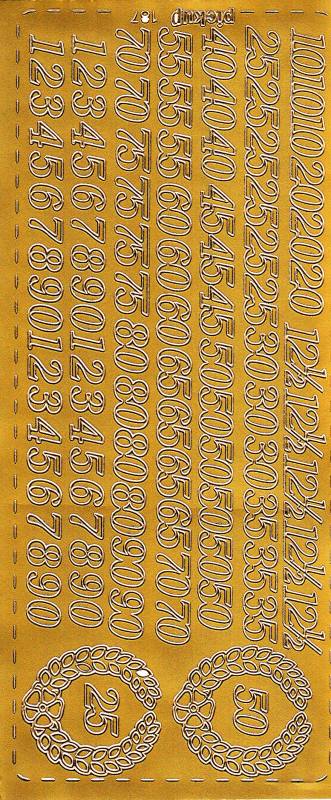 pickup 187
10 10 10 20 20 20 12½ 12½ 12½ 12½ 12½
25 25 25 25 25 25 30 30 30 35 35 35
40 40 40 45 45 45 50 50 50 50 50 50
55 55 55 60 60 60 65 65 65 65 70 70
70 70 75 75 75 75 80 80 80 80 90 90
1 2 3 4 5 6 7 8 9 0 1 2 3 4 5 6 7 8 9 0
1 2 3 4 5 6 7 8 9 0 1 2 3 4 5 6 7 8 9 0
50
25